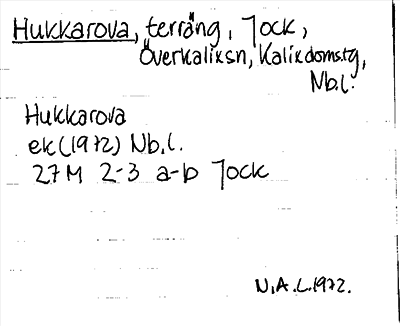 Hukkarova, terräng, Jock,
Överkalixsn, Kalixdoms.tg,
Nb.l.
Hukkarova
ek (1972) Nb.l.
27M 2-3 a-b Jock
N.A.L. 1972.